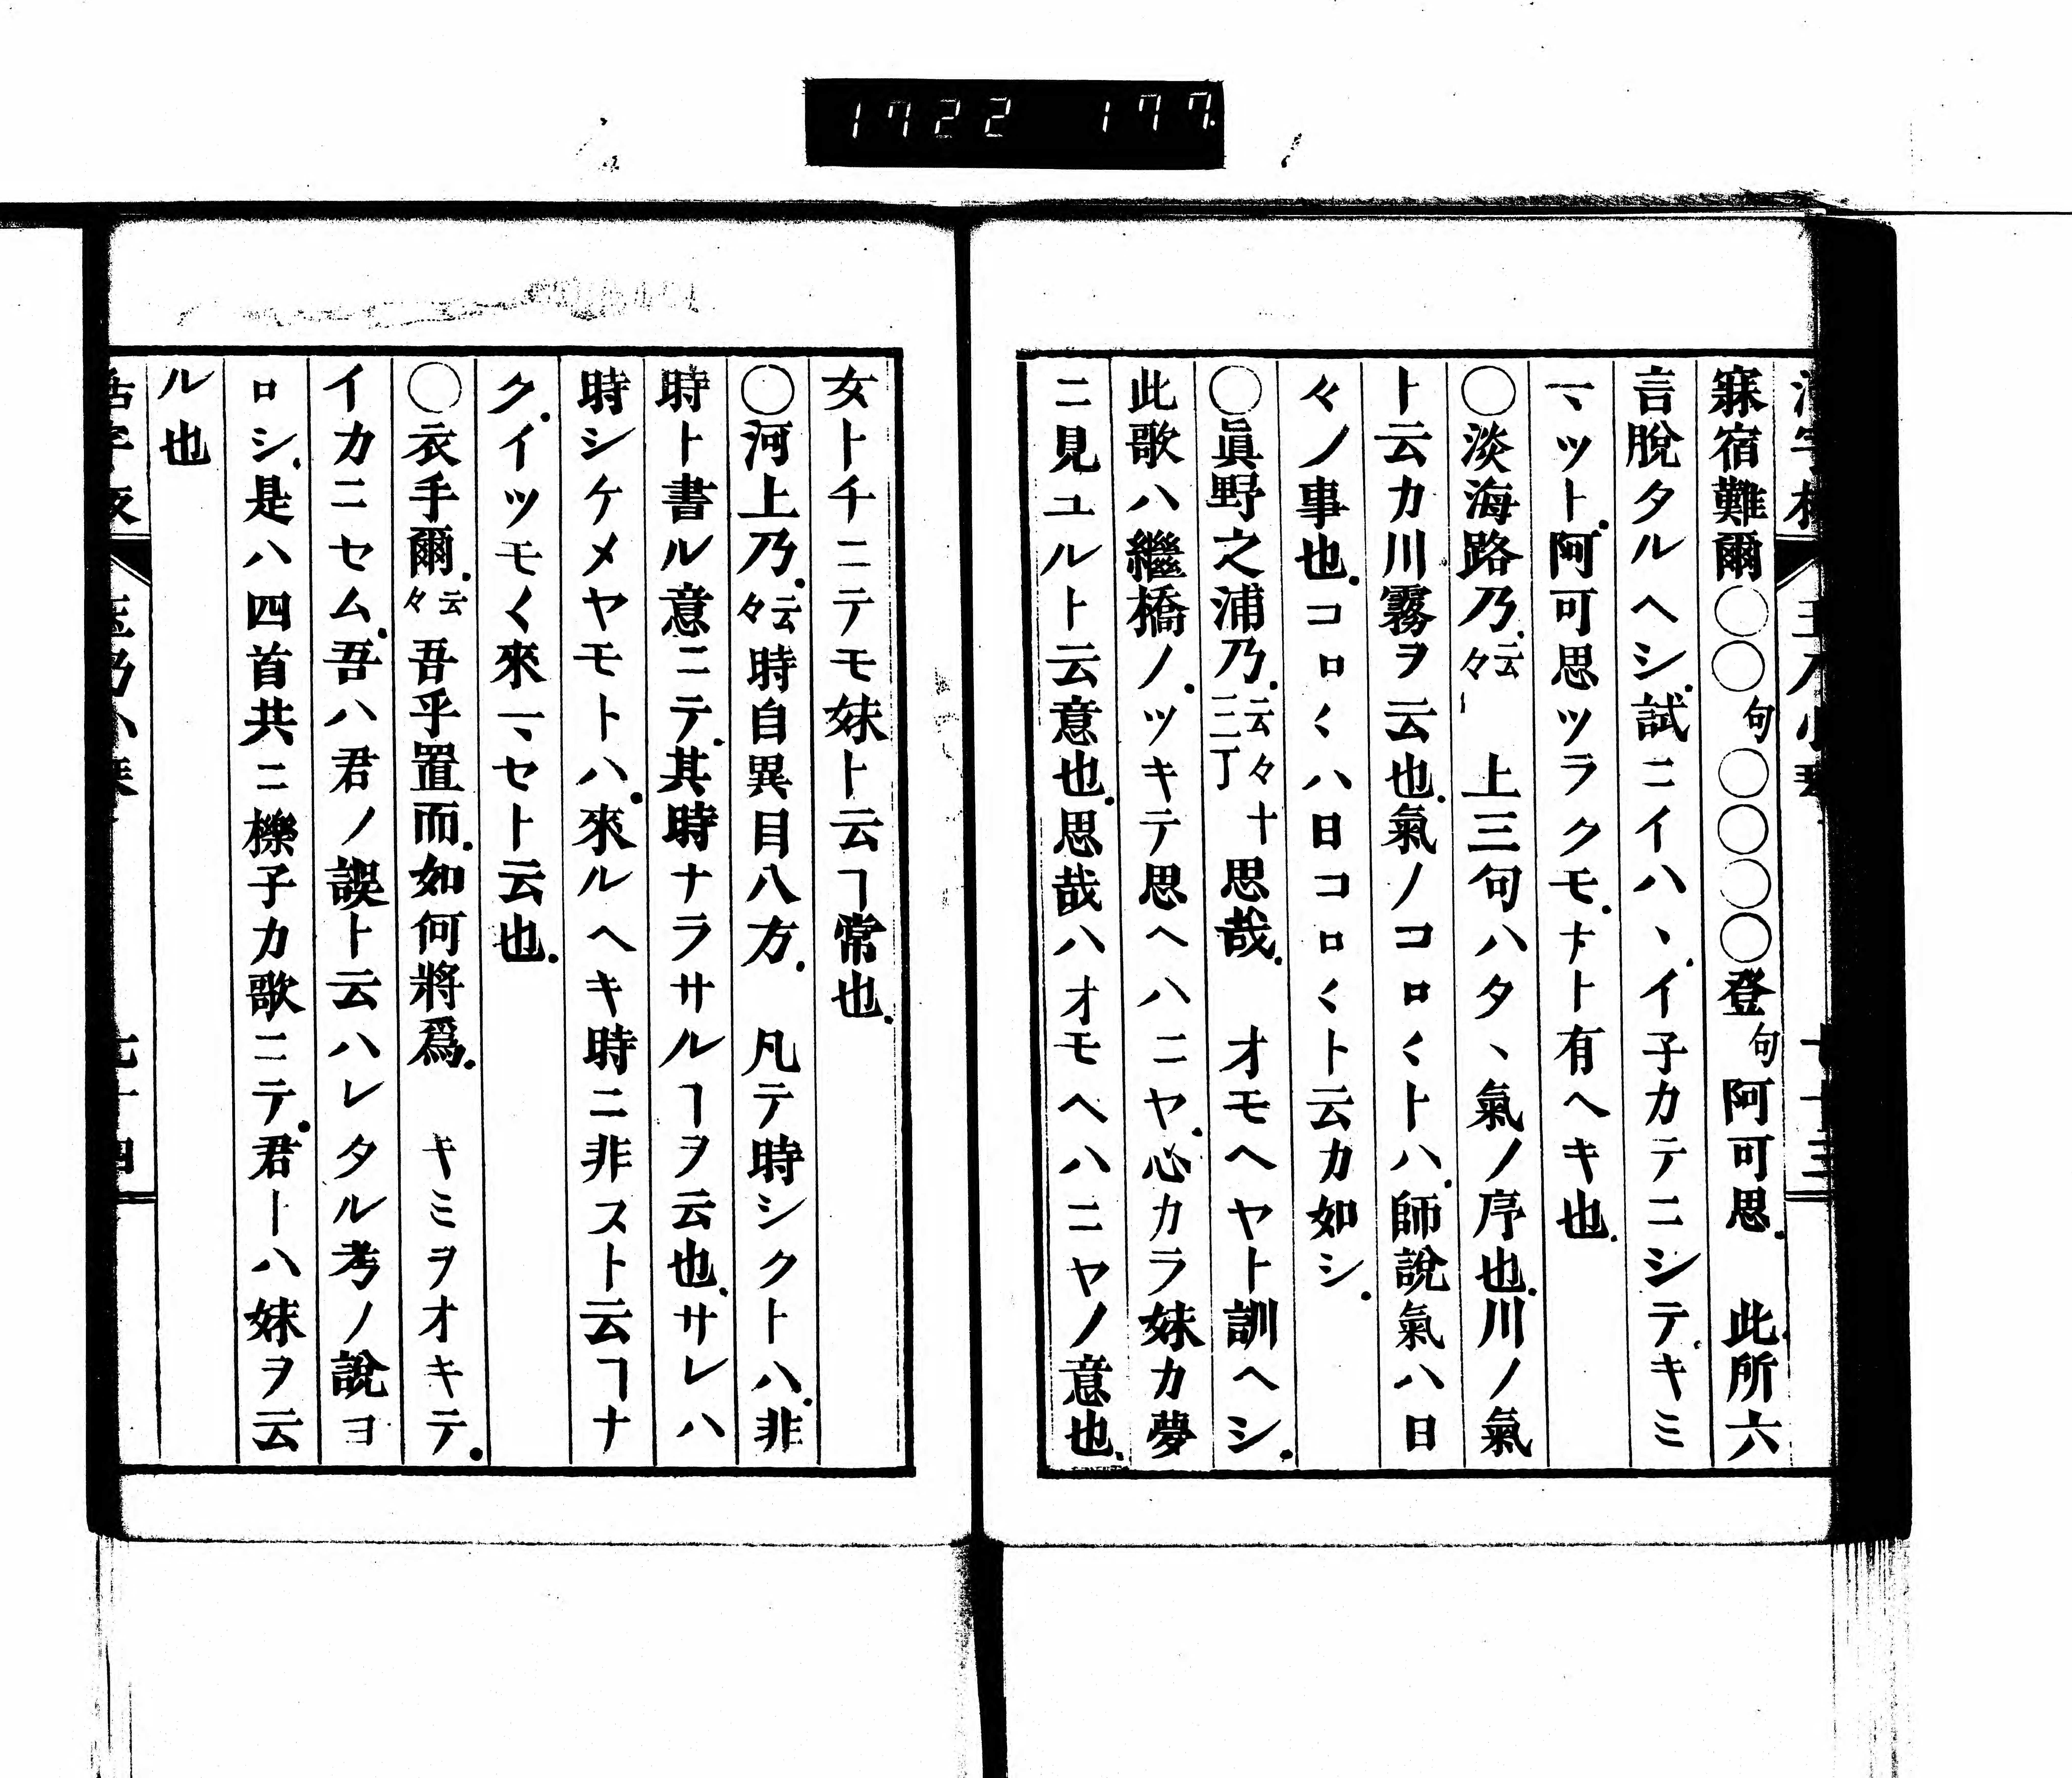 1722 177
寐宿難爾〇〇句〇〇〇〇登句阿可思. 此所六
言脫タルヘシ.試ニイハヽ.イ子カテニシテ.キミ
マヅト.阿可思ツラクモ.ナド有ヘキ也.
〇淡海路乃.云々 上三句ハタヽ氣ノ序也.川ノ氣
ト云カ川霧ヲ云也.氣ノコロ〱トハ.師說氣ハ日
々ノ事也.コロ〱ハ日コロ〱ト云カ如シ.
〇眞野之浦乃.云々十三丁思哉. オモヘヤト訓ヘシ.
此歌ハ繼橋ノ.ツキテ思ヘハニヤ.心カラ妹カ夢
ニ見ユルト云意也.思哉ハオモヘハニヤノ意也.
女ト千ニテモ妹ト云ヿ常也.
〇河上乃.云々時自異目八方. 凡テ時シクトハ.非
時ト書ル意ニテ.其時ナラサルヿヲ云也.サレハ
時シケメヤモトハ.來ルヘキ時ニ非ストト云ヿナ
ク.イツモ〱來マセト云也.
〇衣手爾.云々吾乎置而.如何將爲. キミヲオキテ.
イカニセム.吾ハ君ノ誤ト云ハレタル考ノ說ヨ
ロシ.是ハ四首共ニ櫟子カ歌ニテ.君トハ妹ヲ云
ル也